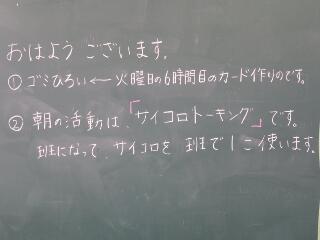 おはよう ございます。
① ゴミひろい ← 火曜日の6時間目のカード作りのです。
② 朝の活動は、「サイコロトーキング」です。
班になって、サイコロを 班で1こ使います。